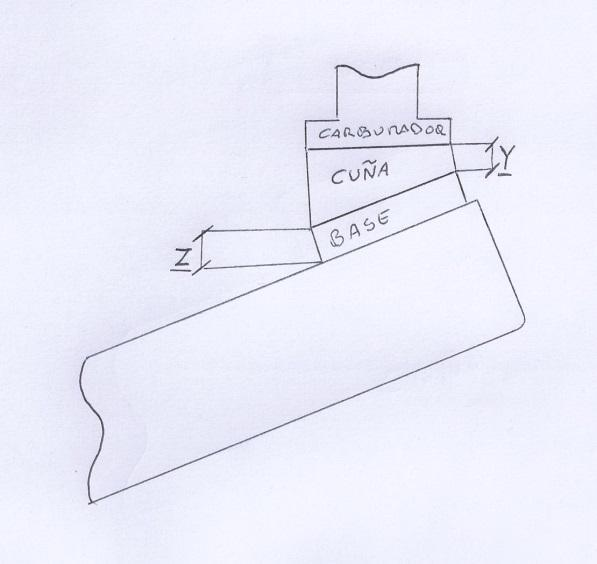 CARBURADOR
CUÑA
Y
BASE
Z